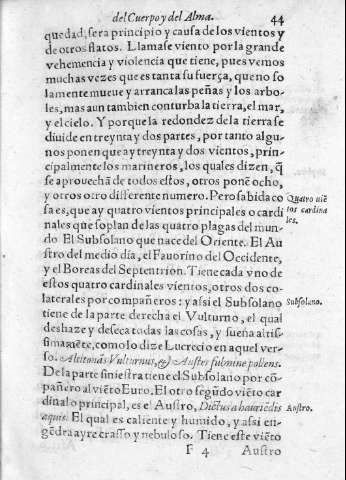 del Cuerpo y del Alma. 44
quedad, sera principio y causa de los vientos y
de otros flatos. Llamase viento por la grande
vehemencia y violencia que tiene, pues vemos
muchas vezes que es tanta su fuerça, que no so
lamente mueue y arranca las peñas y los arbo-
les, mas aun tambien conturba la tierra, el mar,
y el cielo. Y porque la redondez de la tierra se
diuide en treynta y dos partes, por tanto algu-
nos ponen que ay treynta y dos vientos, prin-
cipalmente los marineros, los quales dizen, q̃
se aprouechã de todos estos, otros ponẽ ocho,
y otros otro differente numero. Pero sabida co
sa es, que ay quatro vientos principales o cardi
nales que soplan de las quatro plagas del mun-
do El Subsolano que nace del Oriente. El Au
stro del medio dia, el Fauorino del Occidente,
y el Boreas del Septentrion. Tiene cada vno de
estos quatro cardinales vientos, otros dos co-
laterales por compañeros: y assi el Subsolano
tiene de la parte derecha el Vulturno, el qual
deshaze y desseca todas las cosas, y suena altis-
simamẽte, como lo dize Lucrecio en aquel ver-
so. Altitonãs Vulturnus, & Auster fulmine pollens.
De la parte siniestra tiene el Subsolano por cõ-
pañero al viẽto Euro. El otro segũdo viẽto car
dinal o principal, es el Austro, Dictus a hauriẽdis
aquis. El qual es caliente y humido, y assi en-
gẽdra ayre crasso y nebuloso. Tiene este viẽto
F 4 Austro
Quatro viẽ
tos cardina
les.
Subsolano.
Austro.